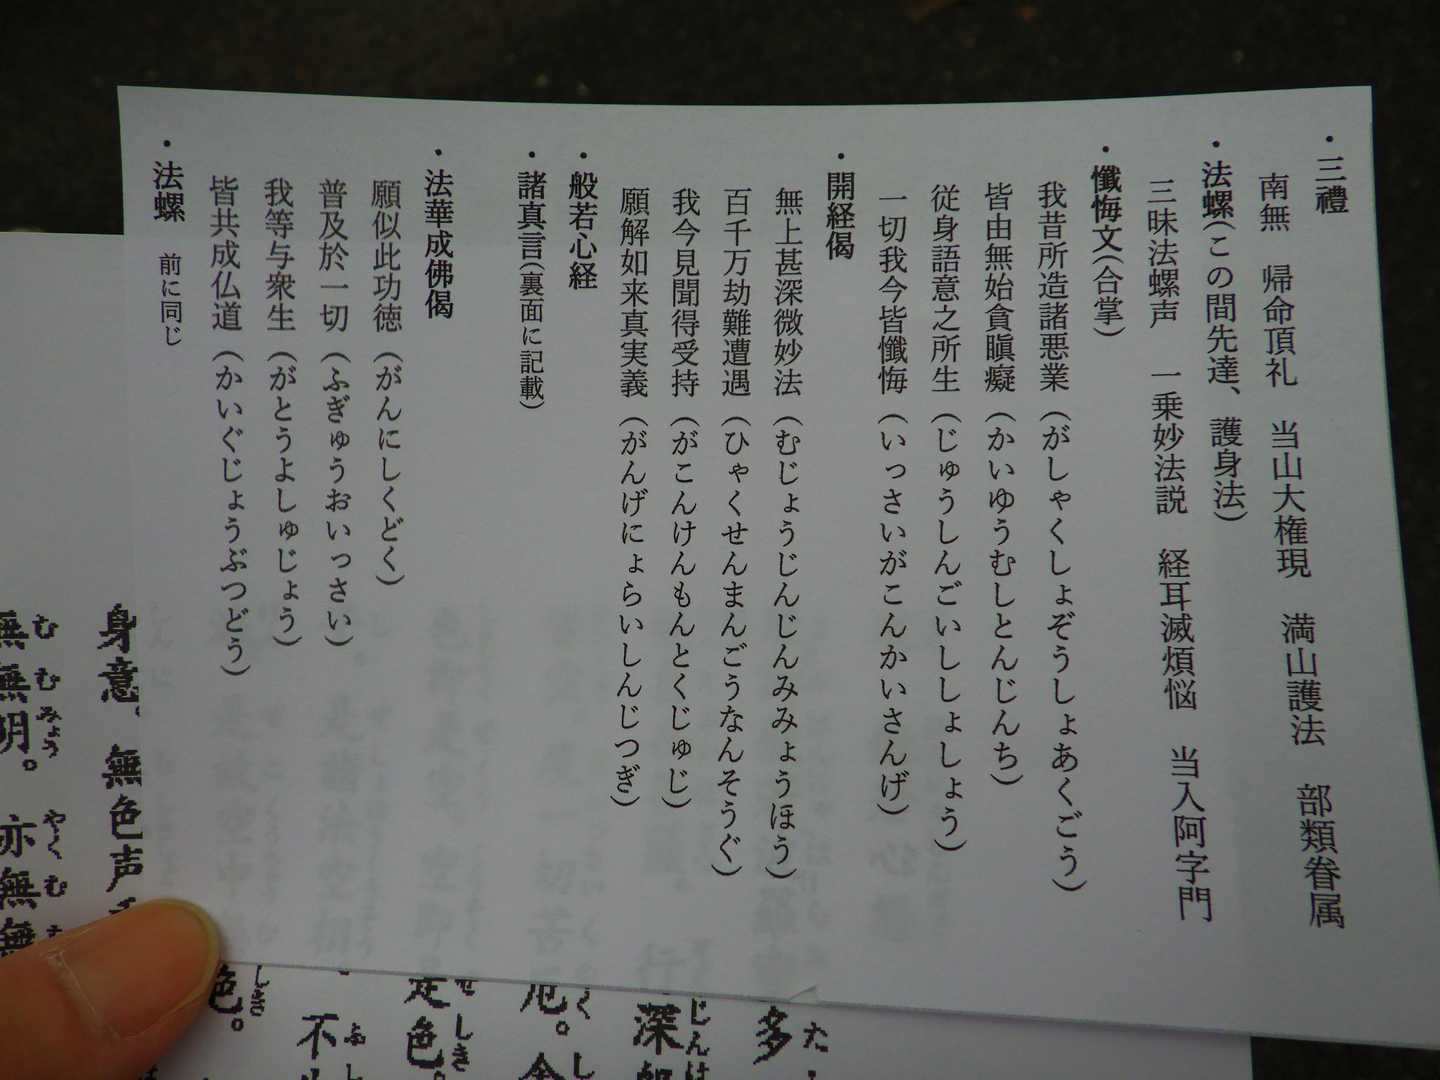 ・三禮
南無　帰命頂礼　当山大権現　満山護法　部類眷属
・法螺(この間先達、護身法)
三昧法螺声　一乗妙法説　経耳滅煩悩　当入阿字門
・懺悔文(合掌)
我昔所造諸悪業(がしゃくしょぞうしょあくごう)
皆由無始貪瞋癡(かいゆうむしとんじんち)
従身語意之所生(じゅうしんごいししょしょう)
一切我今皆懺悔(いっさいがこんかいさんげ)
・開経偈
無上甚深微妙法(むじょうじんじんみみょうほう)
百千万劫難遭遇(ひゃくせんまんごうなんそうぐ)
我今見聞得受持(がこんけんもんとくじゅじ)
願解如来真実義(がんげにょらいしんじつぎ)
・般若心経
・諸真言(裏面に記載)
・法華成佛偈
願似此功徳(がんにしくどく)
普及於一切(ふぎゅうおいっさい)
我等与衆生(がとうよしゅじょう)
皆共成仏道(かいぐじょうぶつどう)
・法螺　前に同じ
多
た
深
じん
厄。
是色。
ぜしき
不
ふ
色。
しき
身意。無色声
無無明。亦無無
むむみょう　やくむ